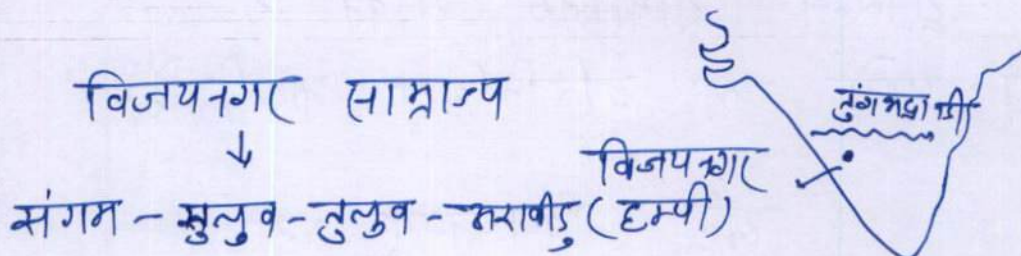 विजयनगर साम्राज्य
↓
संगम - सुलुव - तुलुव - अरावीडु (हम्पी)
विजयनगर
तुंगभद्रा नदी